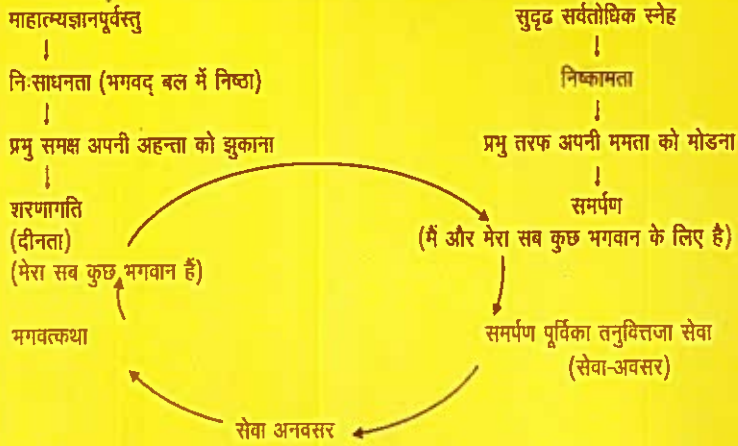 माहात्म्यज्ञानपूर्वस्तु
निःसाधनता (भगवद् बल में निष्ठा)
प्रभु समक्ष अपनी अहन्ता को झुकाना
शरणागति
(दीनता)
(मेरा सब कुछ भगवान हैं)
भगवत्कथा
सुदृढ सर्वतोधिक स्नेह
निष्कामता
प्रभु तरफ अपनी ममता को मोडना
समर्पण
(मैं और मेरा सब कुछ भगवान के लिए है)
समर्पण पूर्विका तनुवित्तजा सेवा
(सेवा-अवसर)
सेवा अनवसर